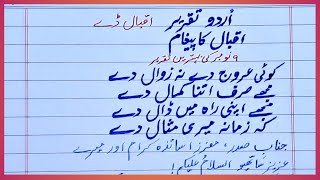 اُردو تقریر اقبال ڈے
اقبال کا پیغام
۹ نومبر کی بہترین تقریر
کوئی عروج دے نہ زوال دے
مجھے صرف اتنا کمال دے
مجھے اپنی راہ میں ڈال دے
کہ زمانہ میری مثال دے
جناب صدر، معزز اساتذہ کرام اور میرے
عزیز ساتھیو السلام علیکم!